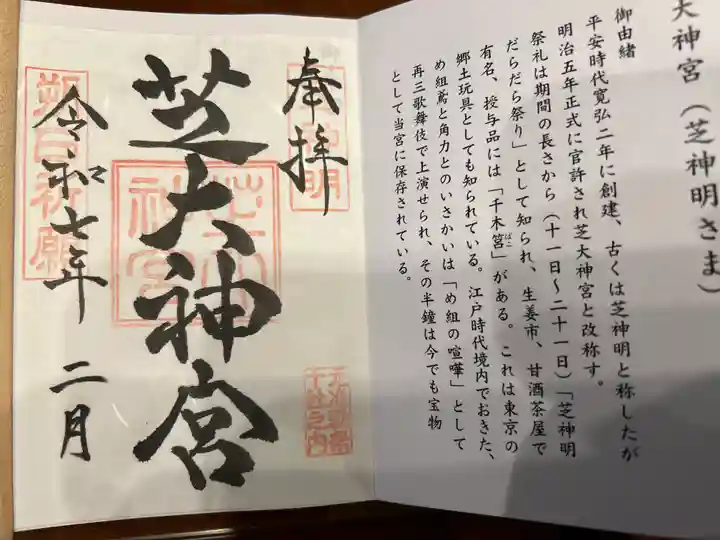 大神宮（芝神明さま）
御由緒
平安時代寛弘二年に創建、古くは芝神明と称したが
明治五年正式に官許され芝大神宮と改称す。
祭礼は期間の長さから（十一日～二十一日）「芝神明
だらだら祭り」として知られ、生姜市、甘酒茶屋で
有名、授与品には「千木筥ばこ」がある。これは東京の
郷土玩具としても知られている。江戸時代境内でおきた、
め組鳶と角力とのいさかいは「め組の喧嘩」として
再三歌舞伎で上演せられ、その半鐘は今でも宝物
として当宮に保存されている。
奉拝
芝大神宮
令和七年 二月
朔日祈願